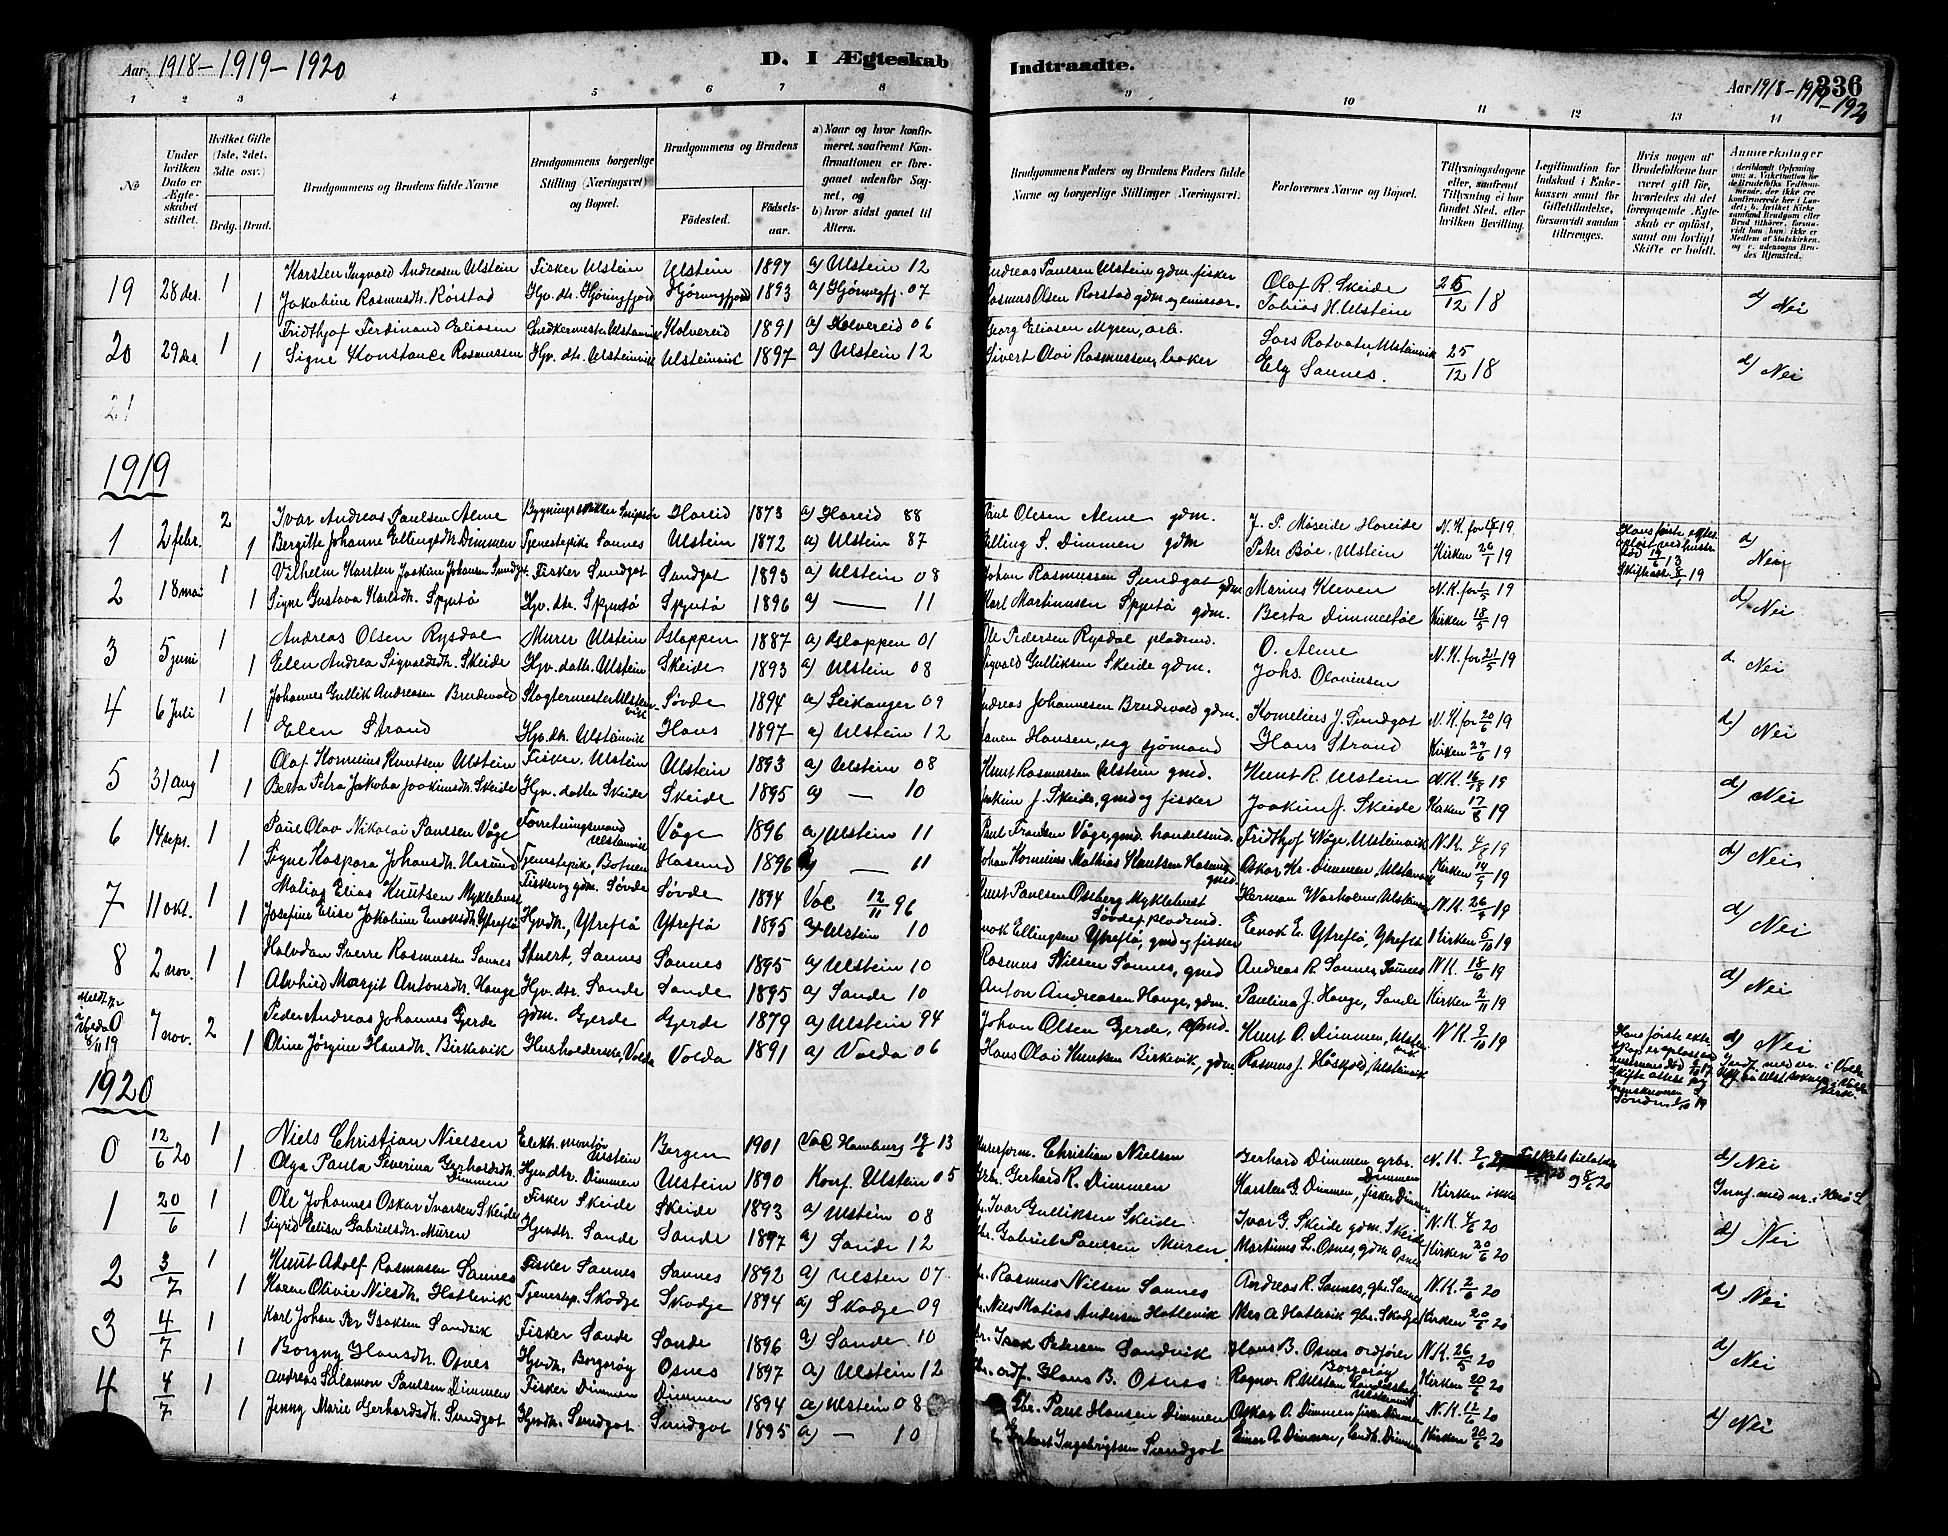 Aar 1918 - 1919 - 1920
D. I Ægteskab Indtraadte.
Aar 1918 - 1919 - 1920 336
1 2 3 4 5 6 7 8 9 10 11 12 13 14
№
Under hvilken Dato er Ægteskabet stiftet.
Hvilket Gifte (1ste, 2det, 3die osv.)
Brdg. Brud.
Brudgommens og Brudens fulde Navne
Brudgommens borgerlige Stilling (Næringsvei) og Bopæl.
Brudgommens og Brudens
Fødested. Fødselsaar.
a) Naar og hvor konfirmeret, saafremt Konfirmationen er foregaaet udenfor Sognet, og
b) hvor sidst gaaet til Alters.
Brudgommens Faders og Brudens Faders fulde Navne og borgerlige Stillinger (Næringsvei).
Forlovernes Navne og Bopæl.
Tillysningsdagene eller, saafremt Tillysning ei har fundet Sted, efter hvilken Bevilling.
Legitimation for Indskud i Enkekassen samt for Giftetilladelse, forsaavidt saadan tiltrænges.
Hvis nogen af Brudefolkene har været gift før, hvorledes da det foregaaende Ægteskab er opløst, samt om lovligt Skifte er holdt.
Anmærkninger
19 28 des. 1 Karsten Ingvald Andreasen Ulstein Fisker Ulstein Ulstein 1897 a) Ulstein 12 Andreas Paulsen Ulstein gdm. fisker Olaf R. Skeide 25/12 18 d) Nei
1 Jakobine Rasmusdt. Rörstad Hjv. dtr. Hjörungfjord Hjörungfjord 1893 a) Hjörungfj. 07 Rasmus Olsen Rorstad gdm og emissær. Tobias H. Ulstein
20 29 des 1 Fridthjof Ferdinand Eliasen Snedkermester Ulsteinvik Kolvereid 1891 a) Kolvereid 06 Georg Eliasen Mysen, arb. Lars Rotvatn, Ulsteinvik 25/12 18 d) Nei
1 Signe Konstance Rasmussen Hjv. dtr. Ulsteinvik Ulsteinvik 1897 a) Ulstein 12 Sivert Olai Rasmussen, baker Elg Sannes.
21
1919
1 2 febr. 2 Ivar Andreas Paulsen Alme Hareid 1873 a) Hareid 88 Paul Olesen Alme gdm. J. P. Möseide Hareide N.K. for 19. d) Nei
1 Bergitte Johanne Ellingsdt. Dimmen Tjenestepike Sannes Ulstein 1872 a) Ulstein 87 Elling S. Dimmen gdm Peter Böe, Ulstein Kirken 26/1 19
2 18 mai 1 Vilhelm Karsten Joakim Johansen Sundgot Fisker Sundgot Sundgot 1893 a) Ulstein 08 Johan Rasmussen Sundgot gdm Marius Kleven N.K. for 1/5 19 d) Nei
1 Signe Gustava Karlsdt. Spjutö Hjv. dtr. Spjutö Spjutö 1896 a) — 11 Karl Martinusen Spjutö gdm. Berta Dimmestöl Kirken 18/5 19
3 5 juni 1 Andreas Olsen Rysdal Murer Ulstein Gloppen 1887 a) Gloppen 01 Ole Pedersen Rysdal pladsmd. O. Alme N.K. for 21/5 19 d. Nei
1 Elen Andrea Sigvaldsdt. Skeide Hjv. datter. Ulstein Skeide 1893 a) Ulstein 08 Sigvald Gulliksen Skeide gdm. Johs. Olavinsen
4 6 Juli 1 Johannes Gullik Andreasen Brudevold Slagtermester Ulsteinvik Sövde 1894 a) Leikanger 09 Andreas Johannesen Brudevold gdm. Kornelius J. Sundgot N.K. for 20/6 19 d) Nei
1 Elen Strand Hjv. dtr. Ulsteinvik Hans 1897 a) Ulstein 12 Hansen, ug sjömand Hans Strand Kirken 29/6 19
5 31 aug 1 Olaf Kornelius Knutsen Ulstein Fisker. Ulstein Ulstein 1893 a) Ulstein 08 Knut Rasmussen Ulstein gmd. Knut R. Ulstein N.K. 16/8 19 d) Nei
1 Berta Petra Jakoba Joakimsdt. Skeide Hjv. datter Skeide Skeide 1895 a) — 10 Joakim J. Skeide, gmd og fisker Joakim J. Skeide Kirken 17/8 19
6 14 sept. 1 Paul Olav Nikolai Paulsen Våge Forretningsmand Ulsteinvik Våge 1896 a) Ulstein 11 Paul Fransen Våge, gmd. handelsmd. Fridthjof Våge, Ulsteinvik N.K. 19 d) Nei
1 Signe Kaspara Johansdt. Hasund Tjenestepike, Botnen Hasund 1896 — 11 Johan Kornelius Mathias Knutsen Hasund gmd. Oskar Kr. Dimmen, Ulsteinvik Kirken 14/9 19
7 11 okt. 1 Matias Elias Knutsen Myklebust Fisker og gdm. Sövde Sövde 1894 Vac 12/11 96 Knut Paulsen Östberg Myklebust Sövde, pladsmd. Herman Warholm, Ulsteinvik N.K. 26/9 19 d) Nei
1 Josefine Elise Jakobine Enoksdt. Ytreflö Hjvdt., Ytreflö Ytreflö 1895 a) Ulstein 10 Enok Ellingsen Ytreflö, gmd og fisker Enok E. Ytreflö, Ytreflö Kirken 5/10 19
8 2 nov. 1 Halvdan Sverre Rasmussen Sannes Stuert, Sannes Sannes 1895 a) Ulstein 10 Rasmus Nilsen Sannes, gmd Andreas R. Sannes, Sannes N.K. 18/10 19 d) Nei
1 Alvhild Margit Antonsdt. Hauge Hjv. dtr. Sande Sande 1895 a) Sande 10 Anton Andreasen Hauge, gdm. Paulina J. Hauge, Sande Kirken 2/11 19
0 7 nov. 2 Peder Andreas Johannes Gjerde gdm. Gjerde Gjerde 1879 a) Ulstein 94 Johan Olsen Gjerde, Knut O. Dimmen, Ulsteinvik N.K. 9/10 19 d) Nei
1 Oline Jörgine Hansdt. Birkevik Husholderske, Volda Volda 1891 a) Volda 06 Hans Olai Knutsen Birkevik, gdm Rasmus J. Höskjold, Ulsteinvik
1920
0 12/6 20 1 Niels Christian Nielsen Elekt. montör Ulstein Bergen 1901 Vac Hamburg 13 Christian Nielsen Gerhard Dimmen grbr. Dimmen N.K. 2/6 20 d) Nei
1 Olga Paula Severina Gerhardsdt. Dimmen Hjemdtr. Dimmen Ulstein 1890 Konf. Ulstein 05 Gbr. Gerhard R. Dimmen Karsten G. Dimmen, fisker Dimmen Kirken ikke
1 20/6 1 Ole Johannes Oskar Ivarsen Skeide Fisker Skeide Skeide 1893 a) Ulstein 08 Gbr. Ivar Gulliksen Skeide Ivar G. Skeide gdm. Skeide N.K. 4/6 20 d) Nei
Sigrid Elisa Gabrielsdtr. Muren Hjemdtr. Sande Sande 1897 a) Sande 12 Gbr. Gabriel Paulsen Muren Martinus L. Osnes, gdm Osnes Kirken 20/6 20
2 3/7 1 Knut Adolf Rasmussen Sannes Fisker Sannes Sannes 1892 a) Ulstein 07 Gbr. Rasmus Nilsen Sannes Andreas R. Sannes, gbr. Sannes N.K. 2/6 20 d) Nei
1 Karen Olivie Nilsdt. Hatlevik Tjenestep. Skodje Skodje 1894 a) Skodje 09 Gbr. Nils Matias Andersen Hatlevik A Hatlevik gbr. Skodje Kirken 20/6 20
3 4/7 1 Karl Johan Per Isaksen Sandvik Fisker Sande Sande 1896 a) Sande 10 Gbr. Isak Petersen Sandvik Hans B. Osnes ordförer Borgaröy N.K. 26/5 20 d) Nei
1 Borgny Hansdt. Osnes Hjvdt., Borgaröy Osnes 1897 a) Ulstein 12 Gbr. ordf. Hans B. Osnes Ragnv. R. Ulstein handelsbetj. Ulsteinvik Kirken 20/6 20
4 4/7 1 Andreas Salamon Paulsen Dimmen Fisker Dimmen Dimmen 1894 a) Ulstein 08 Gbr. Paul Hansen Dimmen Oskar O. Dimmen fisker Dimmen N.K. 12/6 20 d) Nei
1 Jenny Marie Gerhardsdt. Sundgot Hjvdt. Sundgot Sundgot 1895 a) — 10 Gerhard Ingebrigtsen Sundgot Einar A. Dimmen, Dimmen Kirken 20/6 20